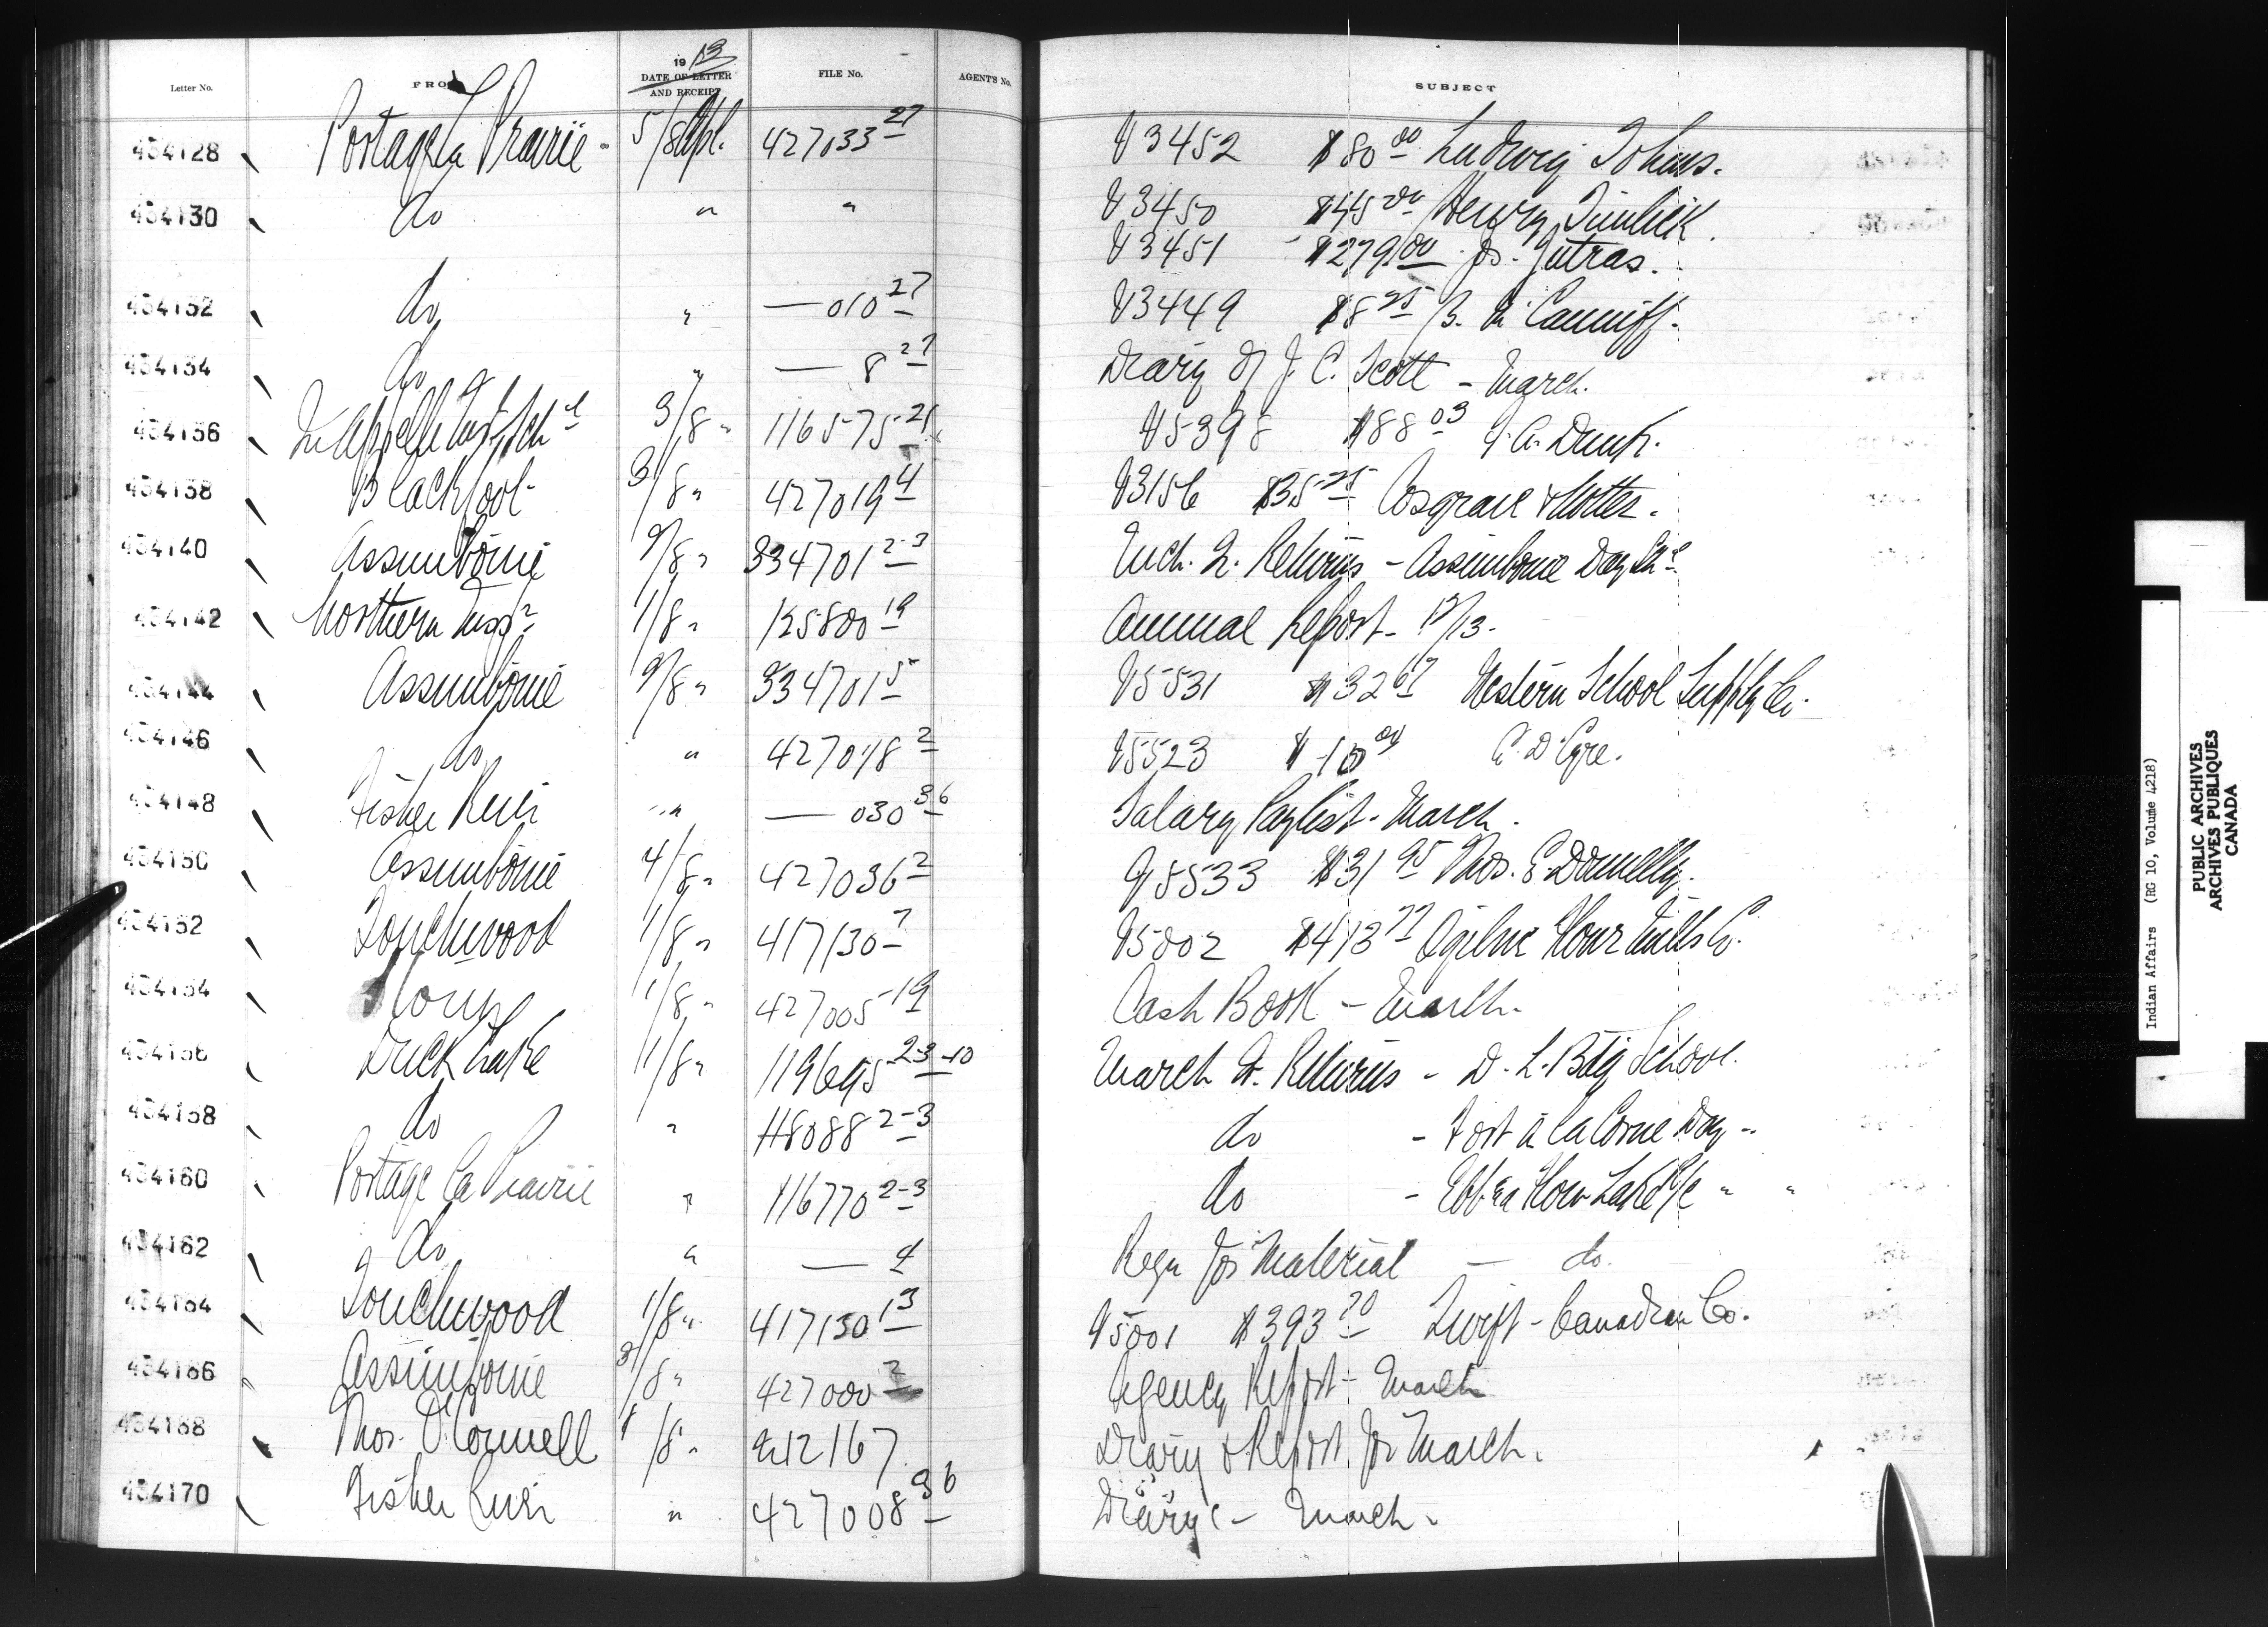 Letter No. FROM 1913 DATE OF LETTER AND RECEIPT FILE No. AGENT'S No. SUBJECT
434128 Portage La Prairie 5/8 Apl. 427033 27 V3452 $80 00 Ludwig
434130 do " " V3450 $45 00 Henry
V3451 $279 00 Jos. Jutras.
434132 do " — 010 27 V3449 $8 25 Canniff.
434134 do " — 8 27 Diary of J. C. Scott - March.
434136 Qu'Appelle Ind. Sch l 3/8 " 116575-21 V5398 $88 03
434138 Blackfoot 3/8 " 427019 4 V3156 $35 25 Cosgrave
434140 Assiniboine 9/8 " 334701 2-3 Mch. Q. Returns - Assiniboine Day Sch l
434142 Northern Insp r 1/8 " 125800 19 Annual Report - 12/13.
434144 Assiniboine 9/8 " 334701 5 V5531 $32 67 Western School Supply Co.
434146 do " 427018 2 V5523 $10 00 Eyre.
434148 Fisher River " " — 030 36 Salary Paylist - March.
434150 Assiniboine 4/8 " 427036 2 V5533 $31 95 Thos. E. Donnelly.
434152 Touchwood 1/8 " 417130 7 V5002 $413 77 Ogilvie Flour Mills Co.
434154 1/8 " 427005 19 Cash Book - March.
434156 Duck Lake 11/8 " 119695 2-3-10 March Q. Returns - D. L. Bdg School.
434158 do " 118088 2-3 do - Fort à la Corne Day "
434160 Portage La Prairie " 116770 2-3 do - Ebb & Flow Lake " "
434162 do " — 4 Reqn for Material — do.
434164 Touchwood 1/8 " 417130 13 V5001 $393 70 Swift-Canadian Co.
434166 Assiniboine 3/8 " 427000 2 Agency Report - March
434168 Thos. O'Connell 1/8 " 212167 Diary & Report for March.
434170 Fisher River " 427008 36 Diarys - March.
Indian Affairs (RG 10, Volume 4218)
PUBLIC ARCHIVES
ARCHIVES PUBLIQUES
CANADA